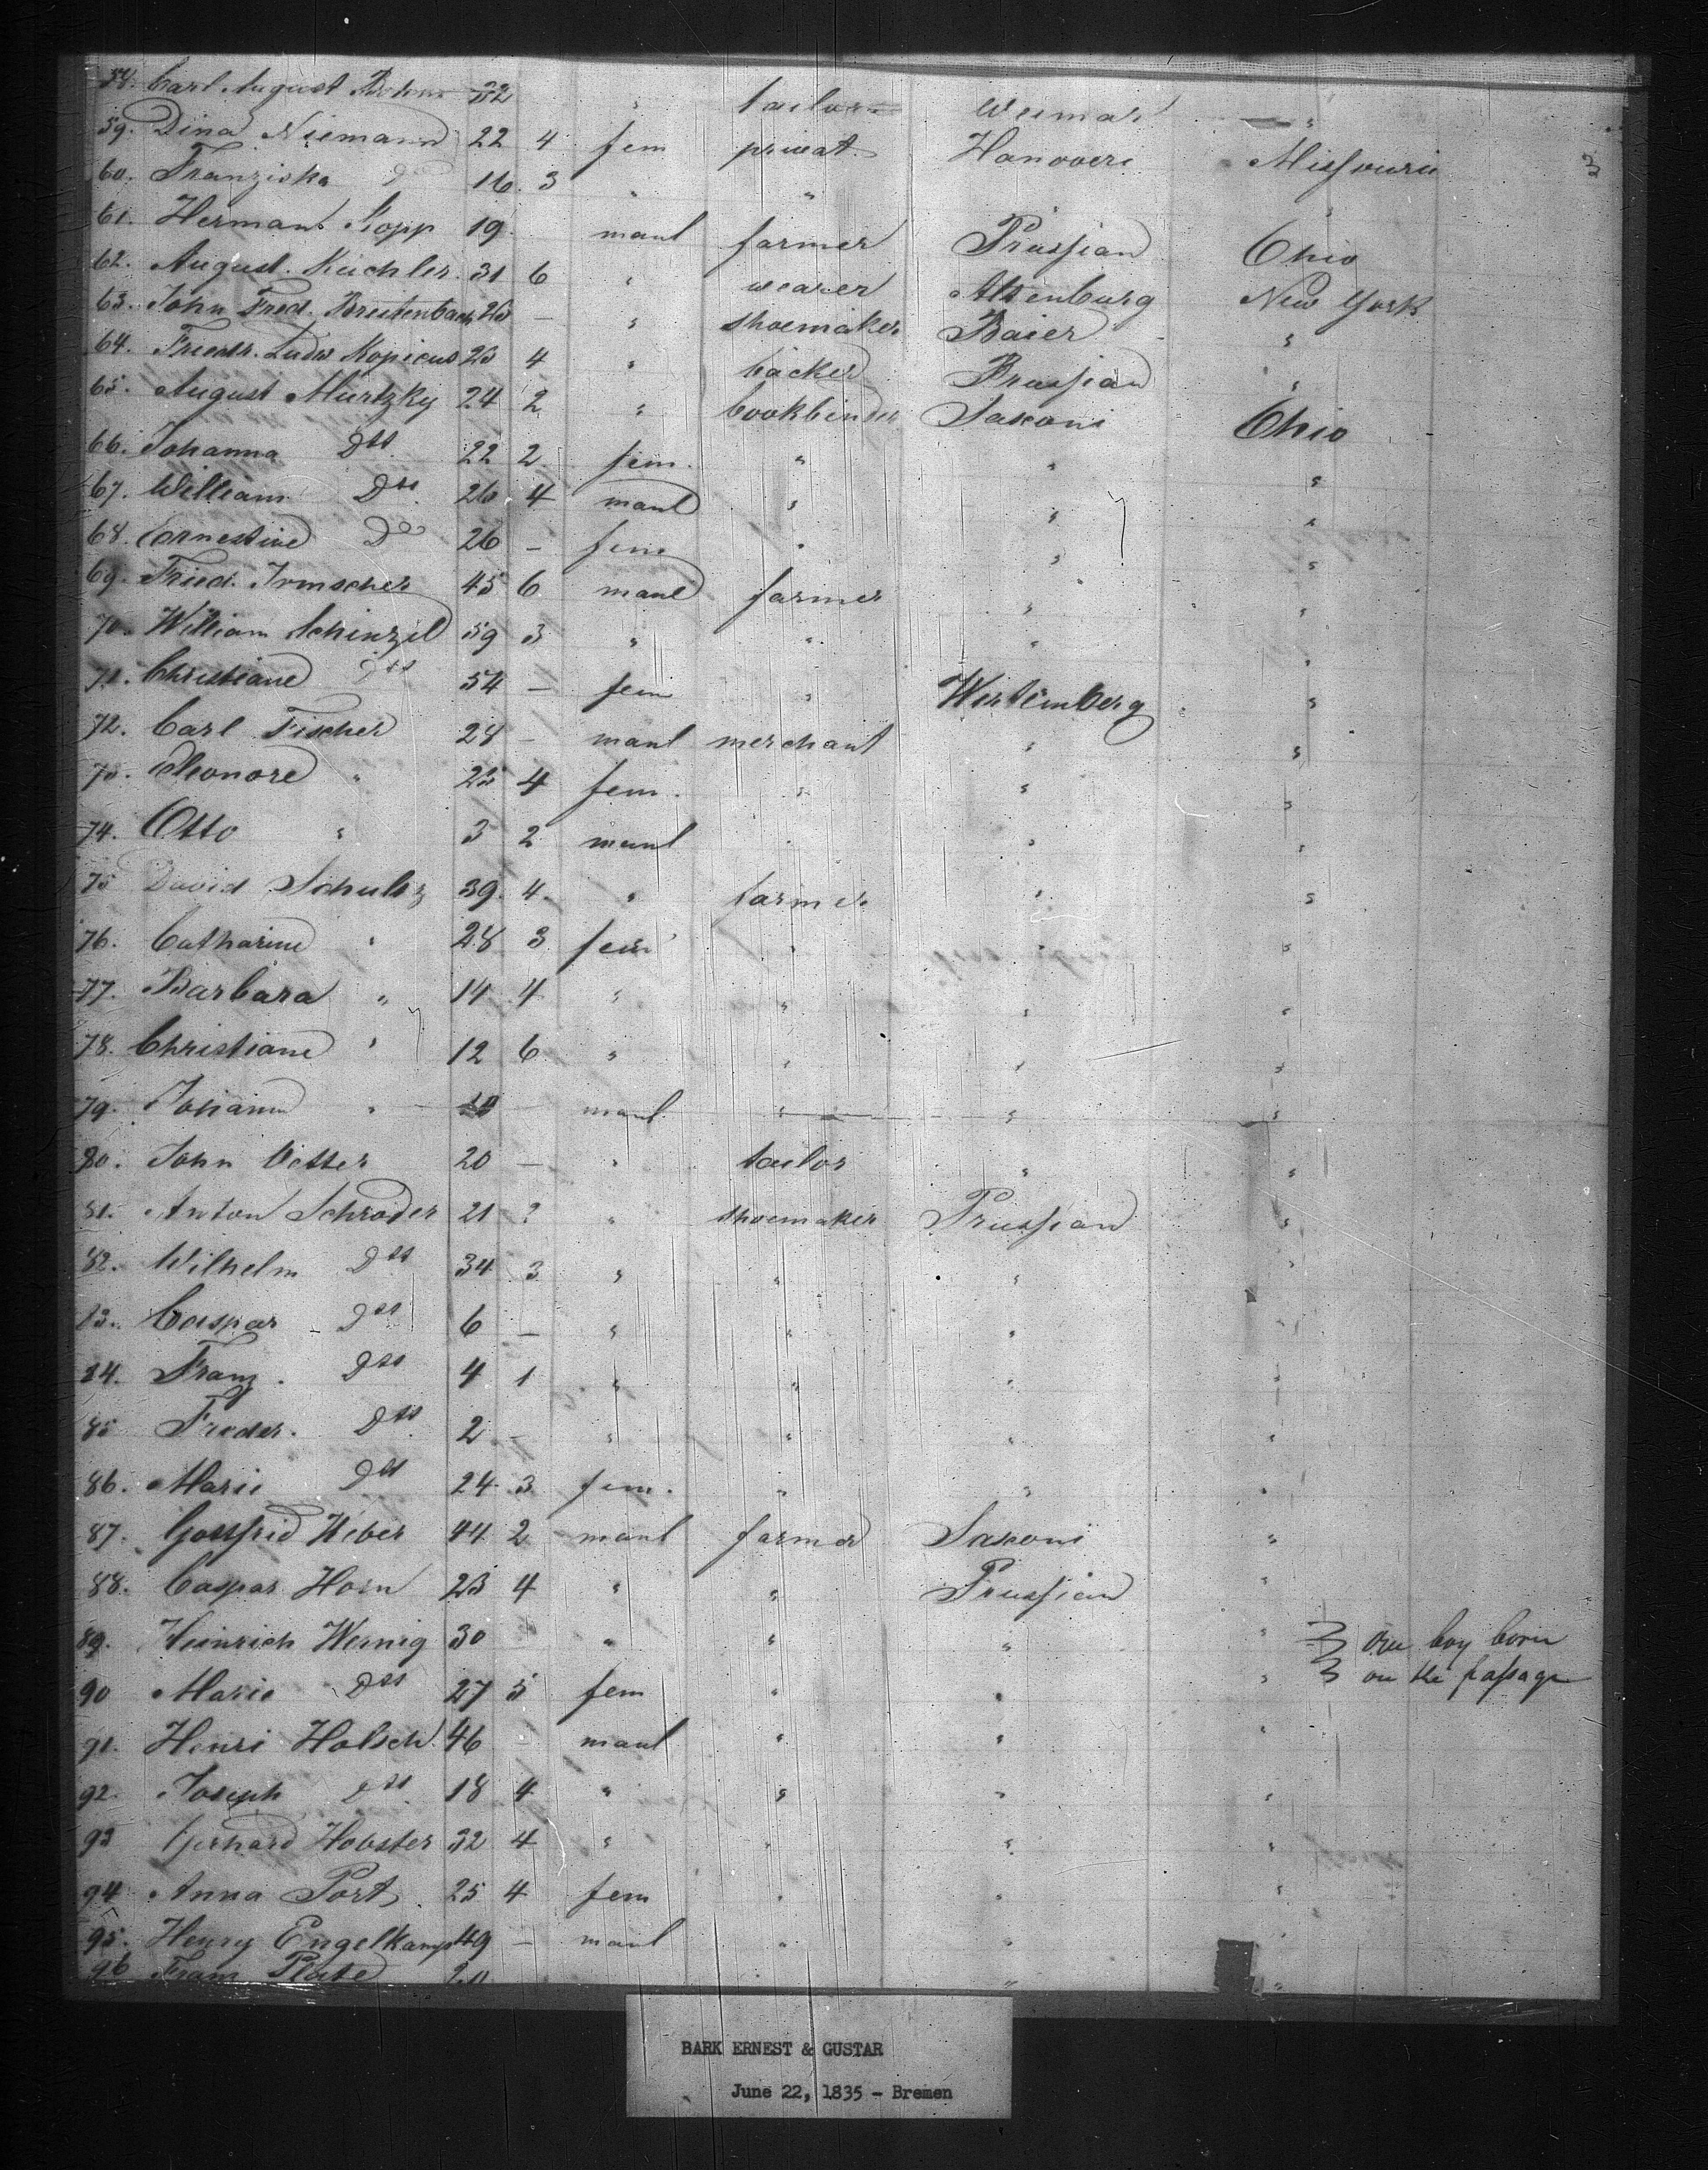 58. Carl August Bohme 22 " tailor Weimar "
59. Dina Niemann 22 4 fem privat Hanovere Missouri 3
60. Franziska do 16. 3 " " "
61. Hermant Kopp 19. maul farmer Prussian Ohio
62. August. Kuchler. 31 6 " weaver Altenburg New York
63. John Fred. Breitenbach 25 — " shoemaker Baier "
64. Friedr. Ludw Kopicus 23 4 " backer Prussian "
65. August Murtzky 24 2 " bookbinder Saxoni Ohio
66. Johanna Dtt 22 2 fem. " " "
67. William Dtt 26 4 maul " " "
68. Ernestine Do 26 — fem " " "
69. Fried. Irmscher 45 6 maul farmer " "
70. William Schinzel 59 3 " " " "
71. Christiane Dtt 54 — fem " Wertemberg "
72. Carl Fischer 28 — maul merchant " "
73. Eleonore " 25 4 fem. " " "
74. Otto " 3 2 maul " " "
75 David Schultz 39. 4. " farmer " "
76. Catharine " 28 3 fem " " "
77. Barbara " 14 4 " " " "
78. Christiane " 12 6 " " " "
79. Johann " — maul " " "
80. John Vetter 20 — " tailor " "
81. Anton Schroder 21 2 " shoemaker Prussian "
82. Wilhelm Dtt 34 3 " " " "
83. Caspar Dtt 6 — " " " "
84. Franz. Dtt 4 1 " " " "
85 Freder. Dtt 2 — " " " "
86. Marie Dtt 24 3 fem. " " "
87. Gottfried Weber 44 2 maul farmer Saxoni "
88. Caspar Horn 23 4 " " Prussian "
89. Heinrich Wernig 30 " " " " one boy born
90 Marie Dtt 27 5 fem " " " on the passage
91. Henri Holsch 46 maul " " "
92. Joseph Dtt 18 4 " " " "
93 Gerhard Hobster 32 4 " " " "
94 Anna Port 25 4 fem " " "
95. Henry Engelkamp 49 — maul " " "
96 Franz Plate " "
BARK ERNEST & GUSTAR
June 22, 1835 - Bremen